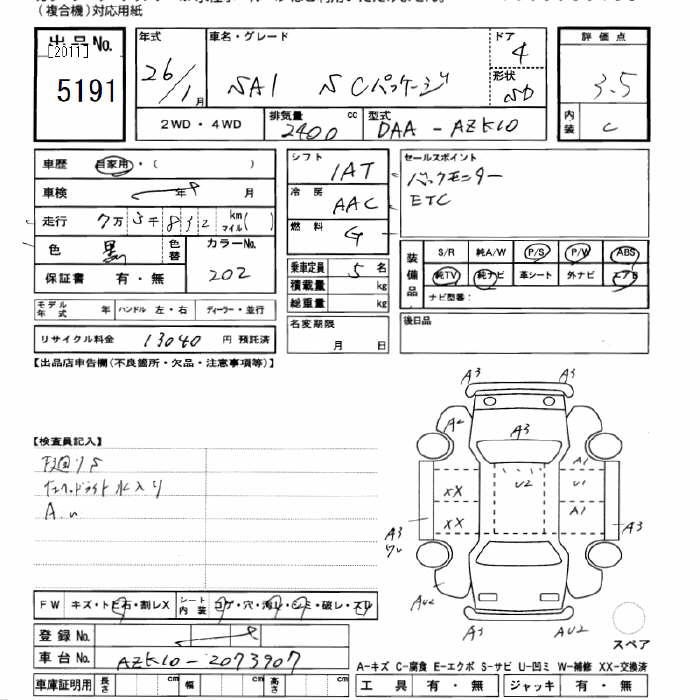 (複合機)対応用紙
出品No.
[2011]
5191
年式
26/1月
車名・グレード
SAI SCパッケージ
ドア
4
形状
SD
2WD・4WD
排気量
2400 cc
型式
DAA-AZK10
評価点
3.5
内装
C
車歴 自家用・( )
車検 年 月
走行 7万5千832 km マイル( )
色 黒 色替
カラーNo.
202
保証書 有・無
モデル年式 年 ハンドル 左・右 ディーラー・並行
リサイクル料金 13040 円 預託済
シフト
IAT
冷房
AAC
燃料
G
乗車定員 5 名
積載量 kg
総重量 kg
名変期限
月 日
セールスポイント
バックモニター
ETC
装備品
S/R 純A/W P/S P/W ABS
純TV 純ナビ 革シート 外ナビ エアB
ナビ型番:
後日品
【出品店申告欄(不良箇所・欠品・注意事項等)】
【検査員記入】
下廻りS
左ヘッドライト水入り
A.u
A3 A3
A2
A3
U2
A1
U1
A1
XX
XX
A3
Wu
A3
AU2
A3
AU2
スペア
FW キズ・トビ石・割レX
シート内装 コゲ・穴・汚レ・シミ・破レ・スレ
登録No.
車台No. AZK10-2073907
車庫証明用 長さ cm 幅 cm 高さ cm
A-キズ C-腐食 E-エクボ S-サビ U-凹ミ W-補修 XX-交換済
工具 有・無 ジャッキ 有・無